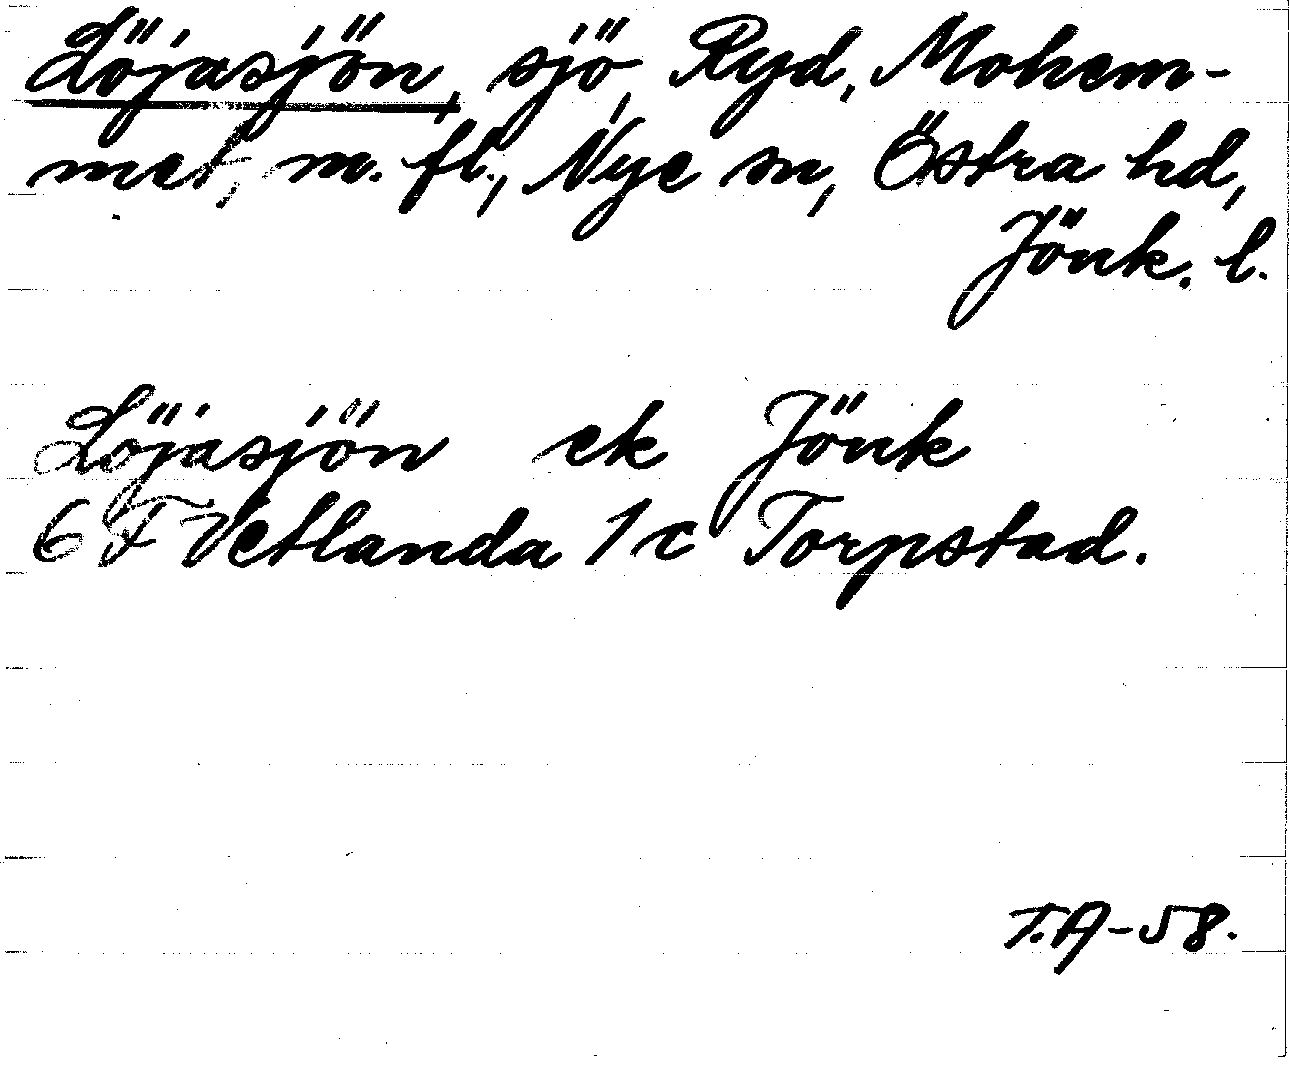 Löjasjön, sjö, Ryd, Mohem-
met, m. fl., Nye sn, Östra hd,
Jönk. l.
Löjasjön ek Jönk
6 F Vetlanda 1 c Torpstad.
T.A-58.